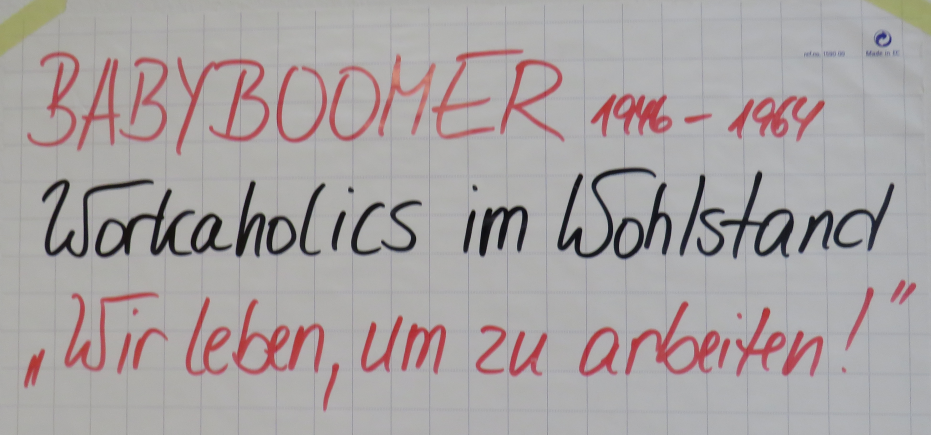 BABYBOOMER 1946 - 1964
Workaholics im Wohlstand
„Wir leben, um zu arbeiten!"
Made in EC